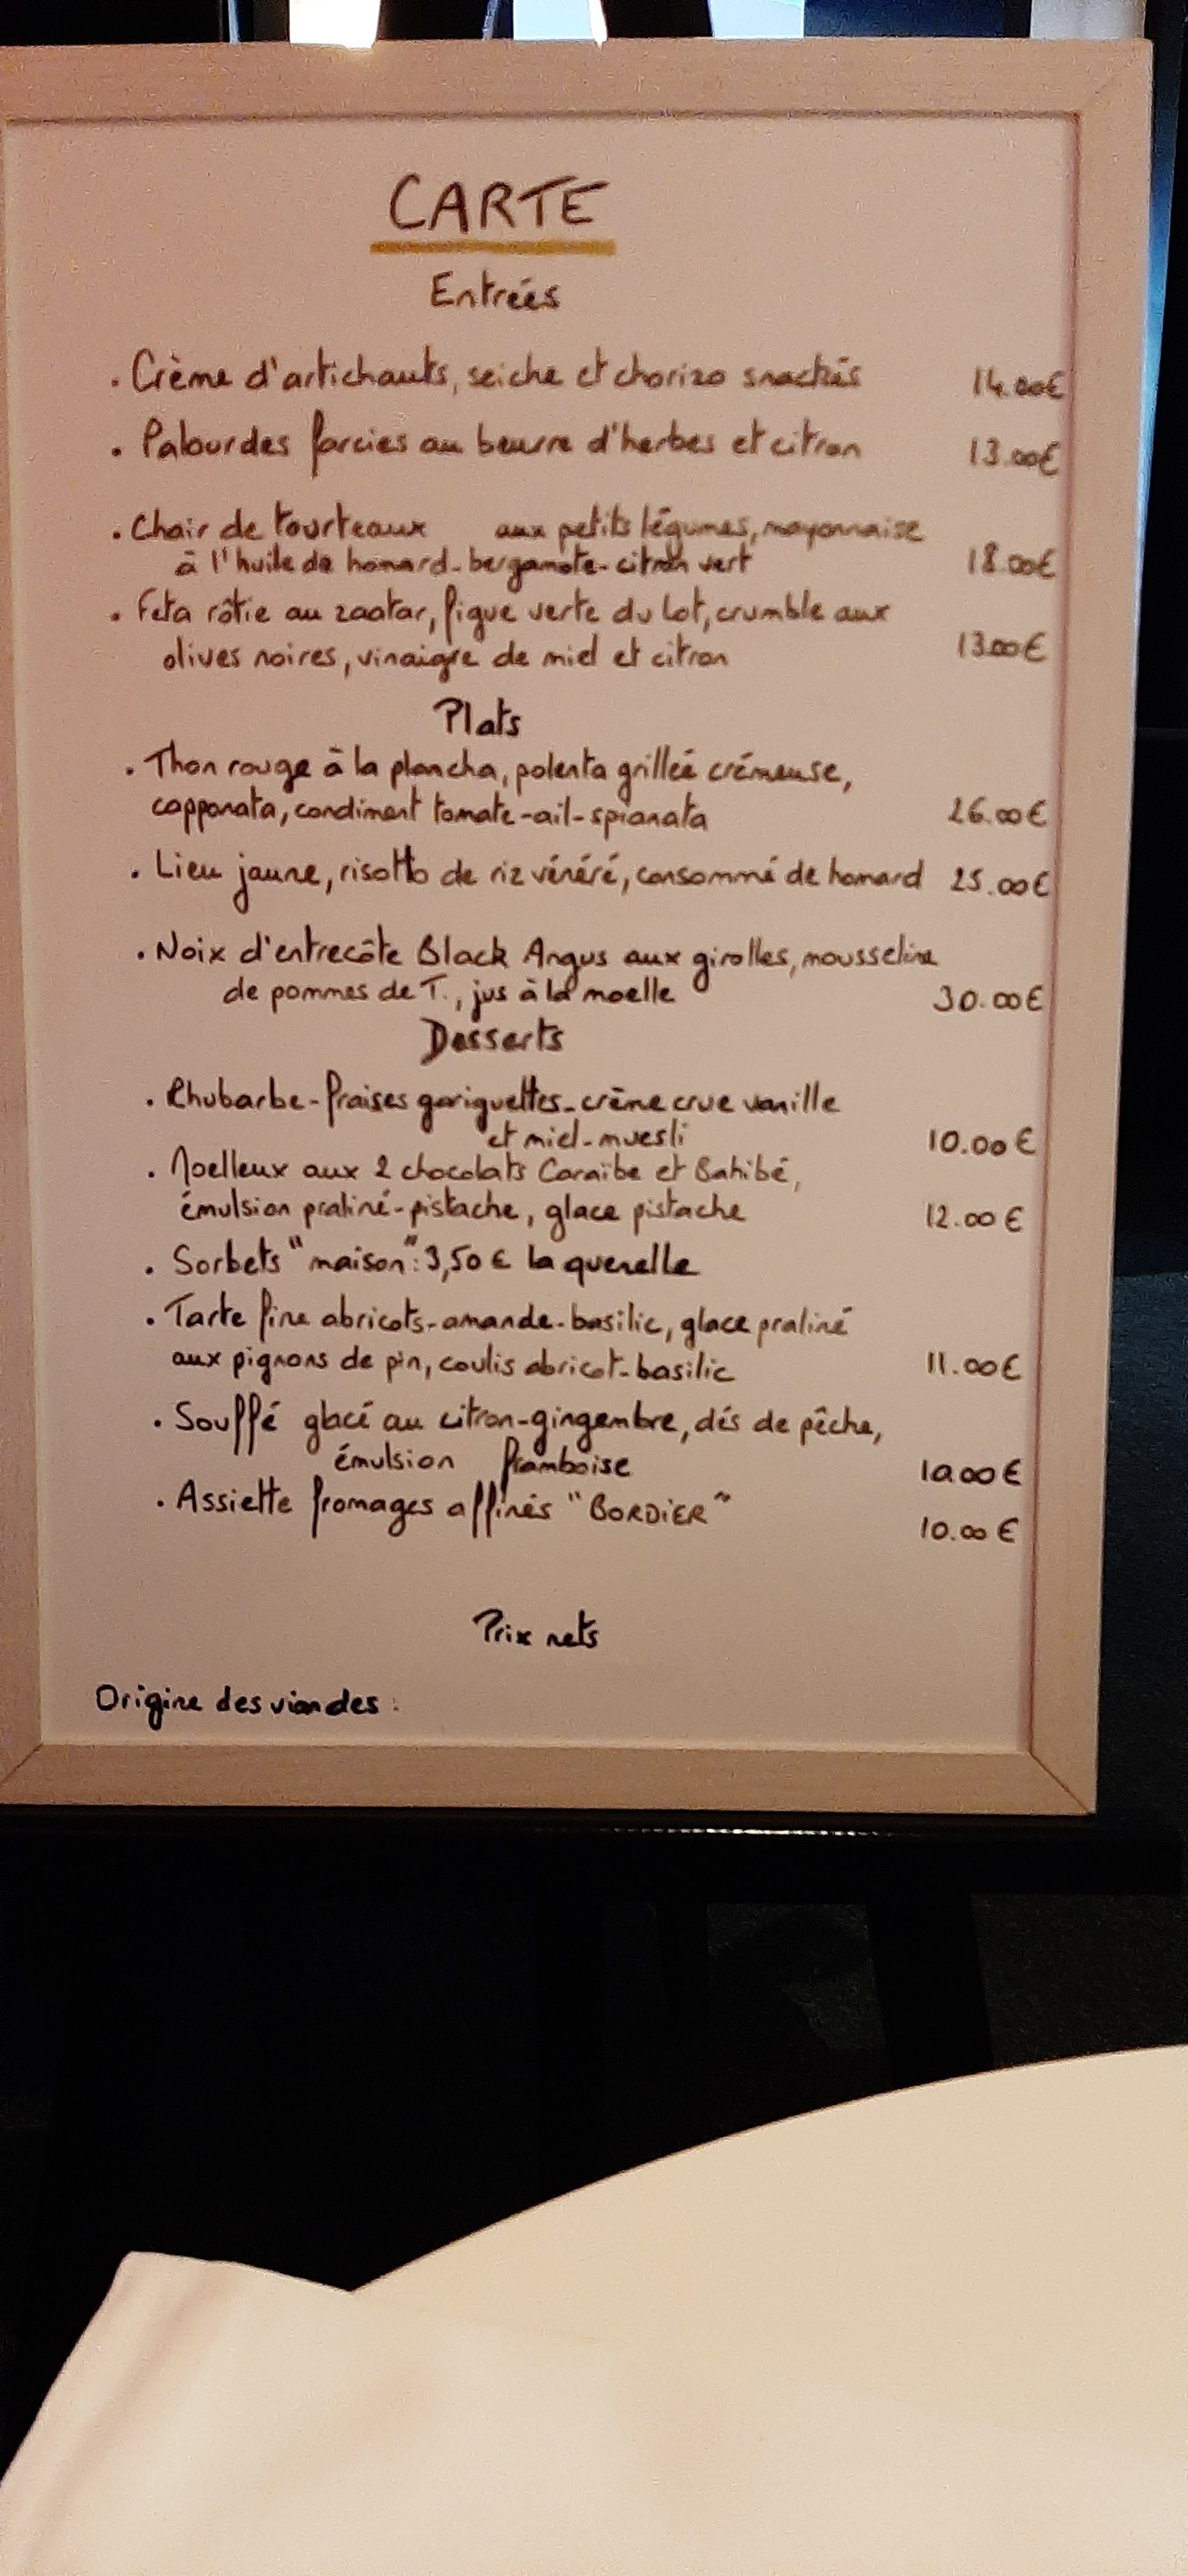 CARTE
Entrées
. Crème d'artichauts, seiche et chorizo snackés 14.00€
. Palourdes farcies au beurre d'herbes et citron 13.00€
. Chair de tourteaux aux petits légumes, mayonnaise
à l'huile de homard-bergamote-citron vert 18.00€
. Feta rôtie au zaatar, figue verte du Lot, crumble aux
olives noires, vinaigre de miel et citron 13.00€
Plats
. Thon rouge à la plancha, polenta grillée crémeuse,
capponata, condiment tomate-ail-spianata 26.00€
. Lieu jaune, risotto de riz vénéré, consommé de homard 25.00€
. Noix d'entrecôte Black Angus aux girolles, mousseline
de pommes de T., jus à la moelle 30.00€
Desserts
. Rhubarbe-fraises gariguettes-crème crue vanille
et miel-muesli 10.00€
. Moelleux aux 2 chocolats Caraïbe et Bahibé,
émulsion praliné-pistache, glace pistache 12.00€
. Sorbets "maison": 3,50€ la quenelle
. Tarte fine abricots-amande-basilic, glace praliné
aux pignons de pin, coulis abricot-basilic 11.00€
. Soufflé glacé au citron-gingembre, dés de pêche,
émulsion framboise 10.00€
. Assiette fromages affinés "BORDIER" 10.00€
Prix nets
Origine des viandes :